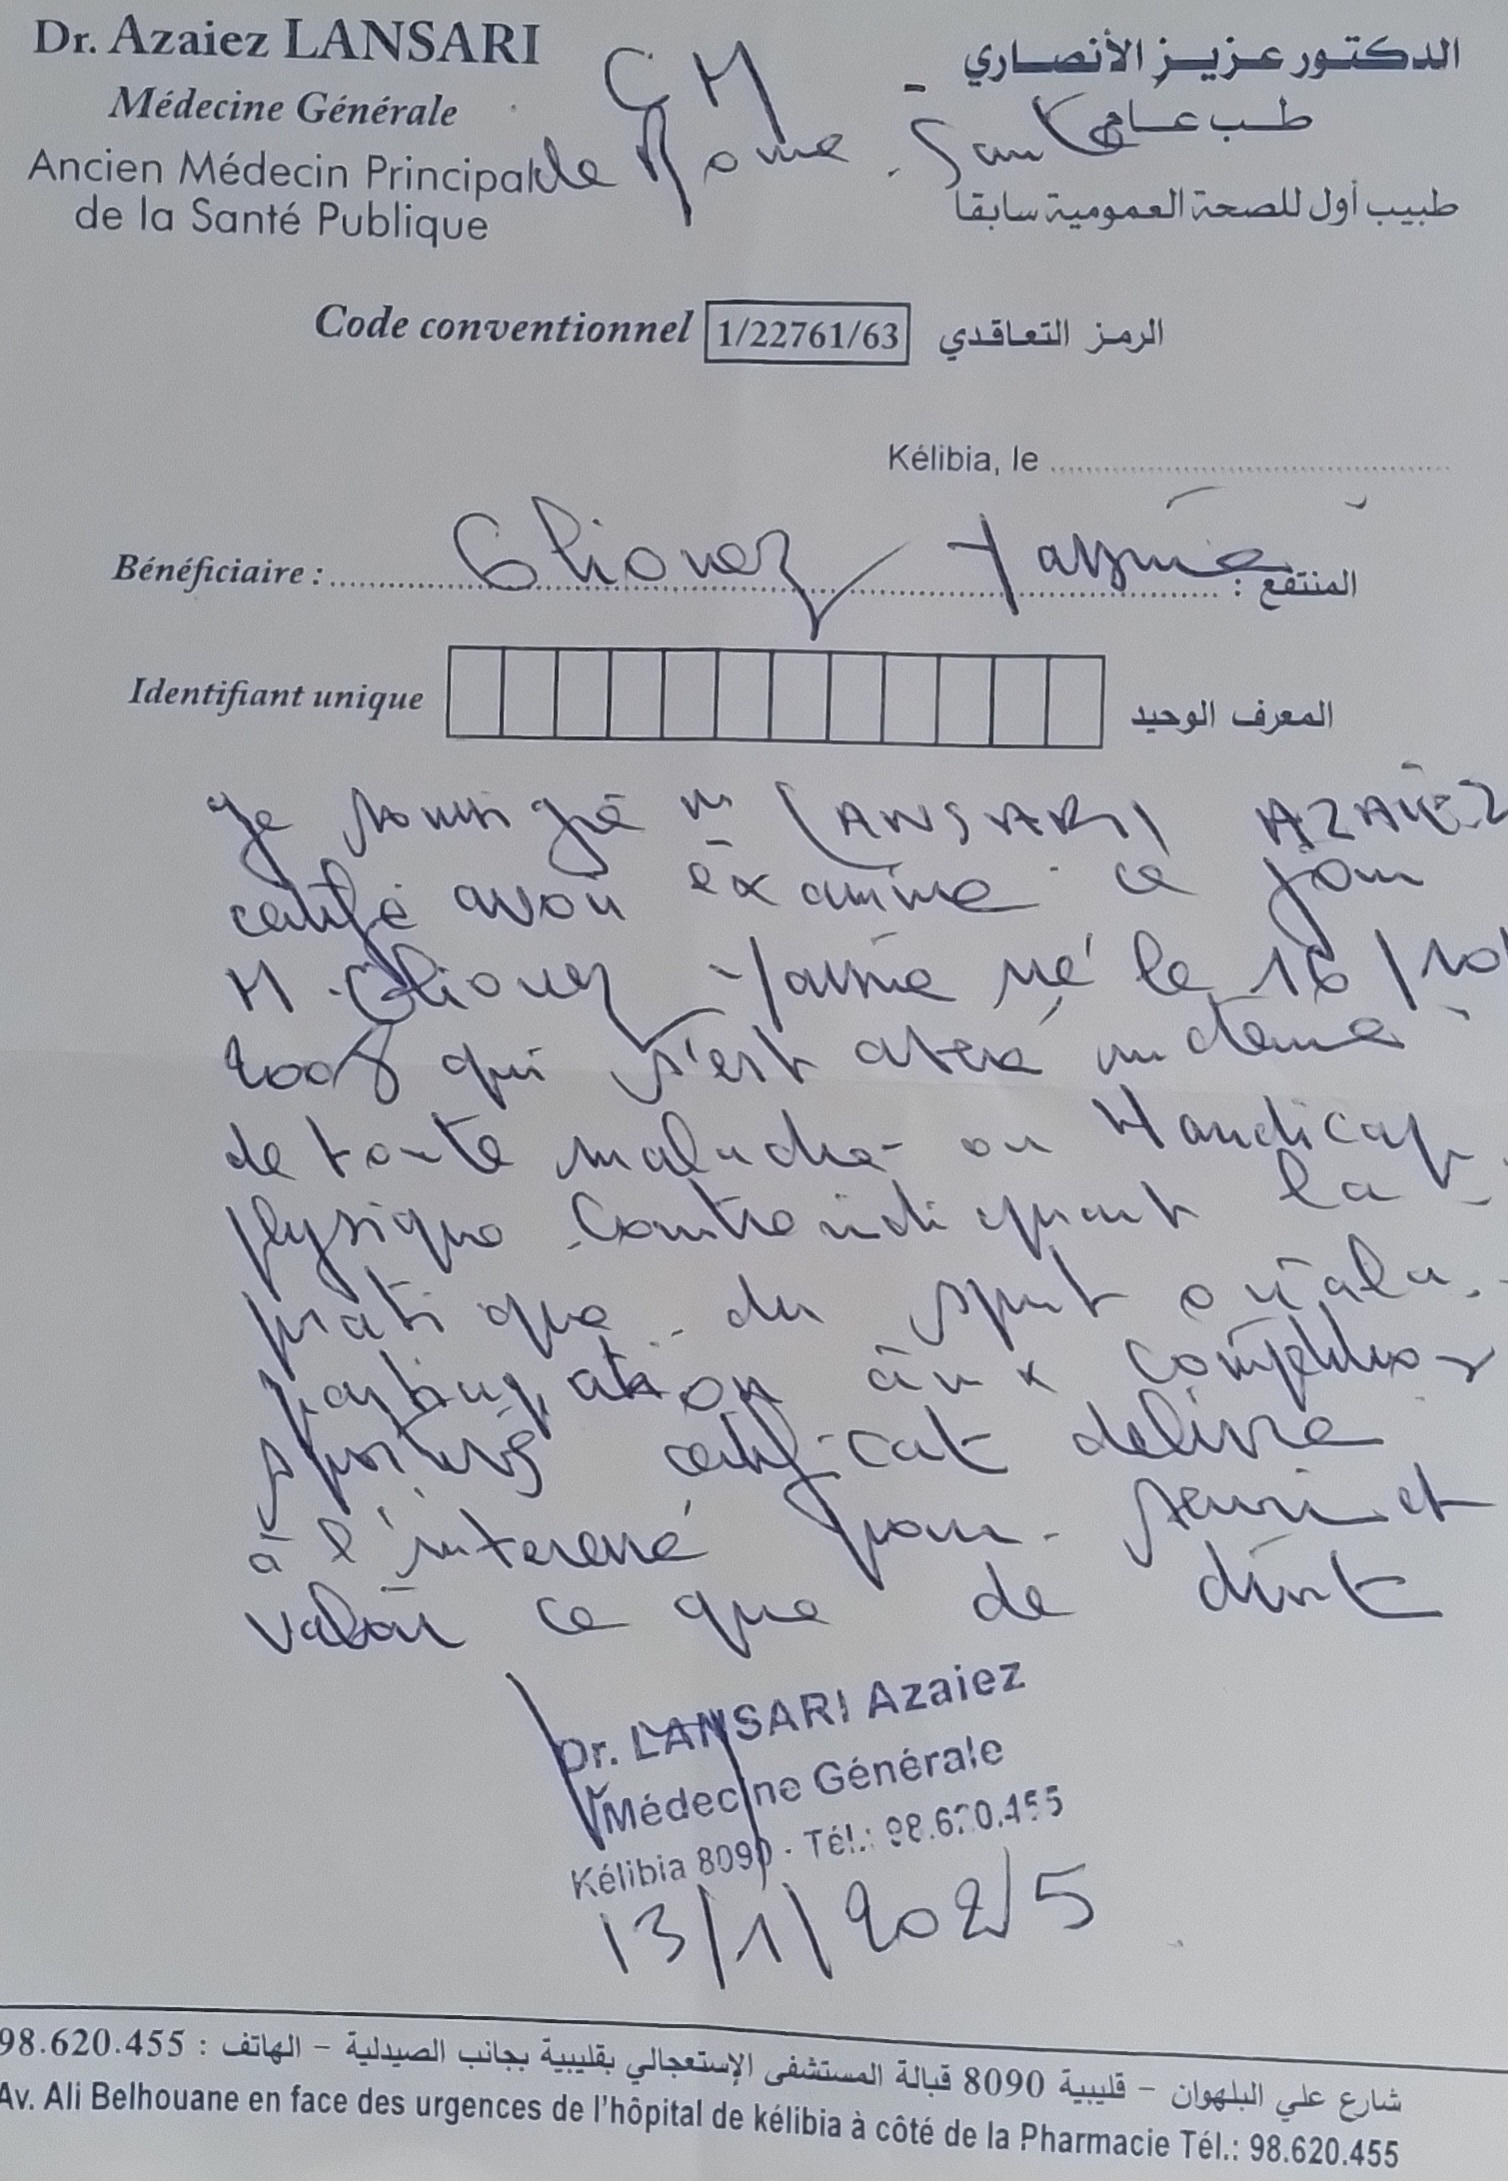 Dr. Azaiez LANSARI
Médecine Générale
Ancien Médecin Principal
de la Santé Publique
الدكتور عزيز الأنصاري
طب عام
طبيب أول للصحة العمومية سابقا
CM
de Bonne Santé
Code conventionnel 1/22761/63 الرمز التعاقدي
Kélibia, le
Bénéficiaire : Yassine المنتفع :
Identifiant unique المعرف الوحيد
Je soussigné LANSARI AZAIEZ
certifie avoir examiné ce jour
M. Yassine né le 16/10/
2008 qui s'est avéré indemne
de toute maladie ou Handicap
physique contreindiquant la
pratique du sport ou à la
participation aux compétitions
sportives certificat délivré
à l'intéressé pour servir et
valoir ce que de droit
Dr. LANSARI Azaiez
Médecine Générale
Kélibia 8090 - Tél.: 98.620.455
13/1/2025
شارع علي البلهوان - قليبية 8090 قبالة المستشفى الإستعجالي بقليبية بجانب الصيدلية - الهاتف : 98.620.455
Av. Ali Belhouane en face des urgences de l'hôpital de kélibia à côté de la Pharmacie Tél.: 98.620.455